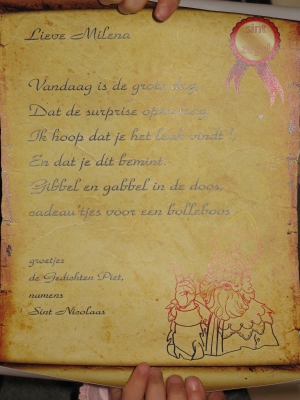 Lieve Milena
Vandaag is de grote dag,
Dat de surprise open mag.
Ik hoop dat je het leuk vindt !
En dat je dit bemint.
Gibbel en gabbel in de doos,
cadeau'tjes voor een bolleboos
groetjes
de Gedichten Piet,
namens
Sint Nicolaas
Sint